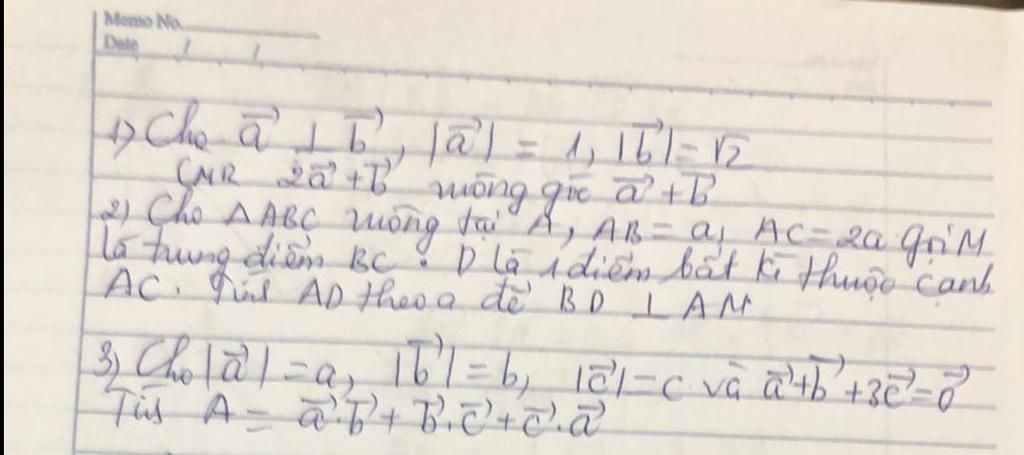 Memo No.
Date / /
1) Cho a⃗ ⊥ b⃗, |a⃗| = 1, |b⃗| = √2
CMR 2a⃗ + b⃗ vuông góc a⃗ + b⃗
2) Cho △ABC vuông tại A, AB = a, AC = 2a gọi M
là trung điểm BC. D là 1 điểm bất kì thuộc cạnh
AC. Tính AD theo a để BD ⊥ AM
3) Cho |a⃗| = a, |b⃗| = b, |c⃗| = c và a⃗ + b⃗ + 3c⃗ = 0⃗
Tính A = a⃗.b⃗ + b⃗.c⃗ + c⃗.a⃗